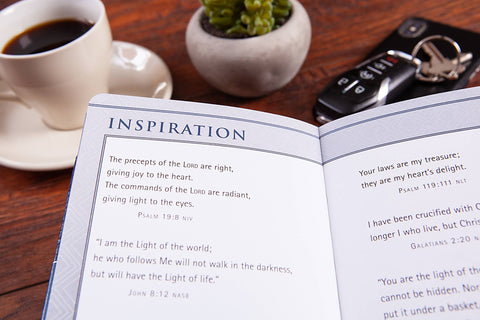 INSPIRATION
The precepts of the LORD are right,
giving joy to the heart.
The commands of the LORD are radiant,
giving light to the eyes.
PSALM 19:8 NIV
"I am the Light of the world;
he who follows Me will not walk in the darkness,
but will have the Light of life."
JOHN 8:12 NASB
Your laws are my treasure;
they are my heart's delight.
PSALM 119:111 NLT
I have been crucified with
longer I who live, but Chris
GALATIANS 2:20
"You are the light of the
cannot be hidden. Nor
put it under a basket,